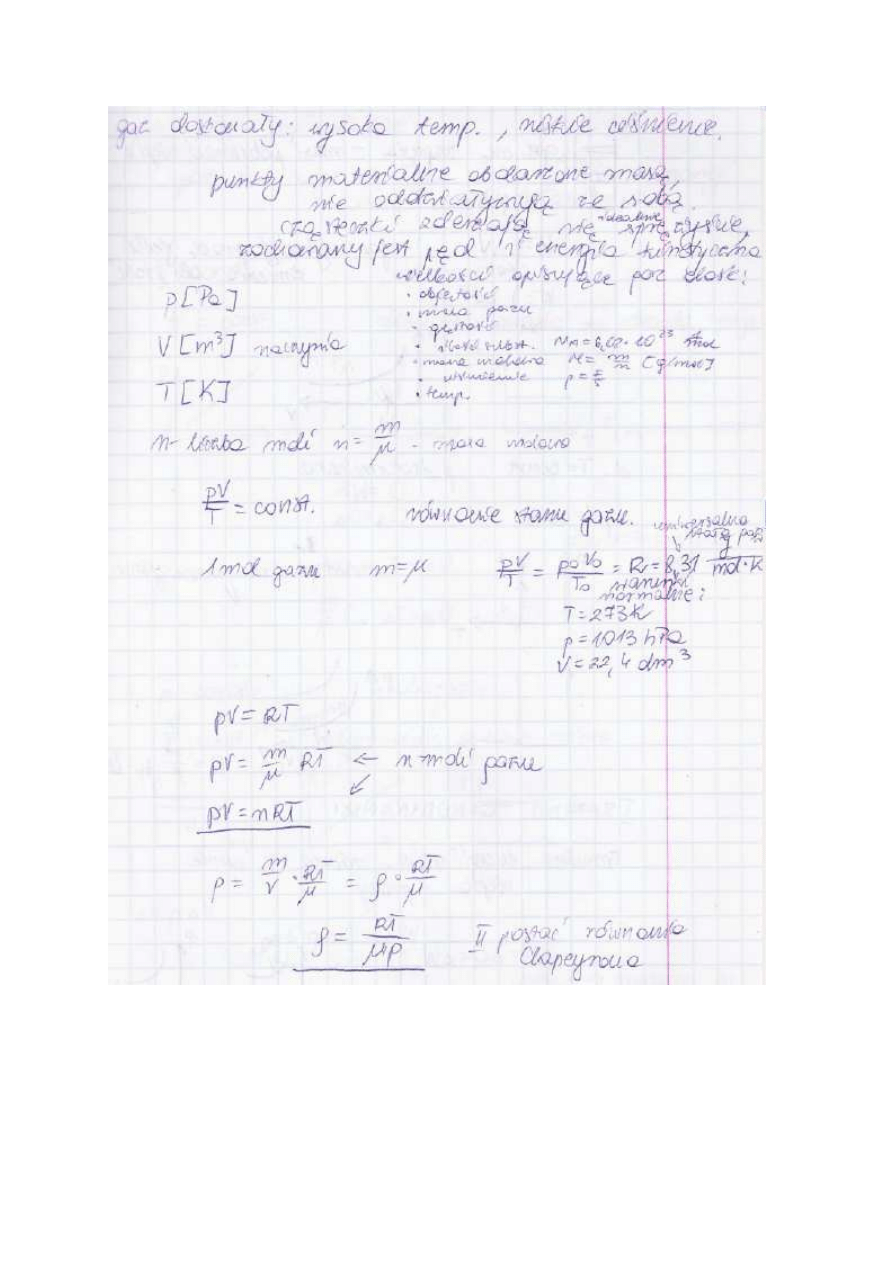 gaz doskonały: wysoka temp., niskie ciśnienie.
punkty materialne obdarzone masą,
nie oddziałytują ze sobą.
cząsteczki zderzają się idealnie sprężyście,
zachowany jest pęd i energia kinetyczna
wielkości opisujące gaz dosk:
p [Pa]
• objętość
• masa gazu
• gęstość
V [m³] naczynia
• ilość subst. N_A = 6,02 · 10²³
• masa molowa M = m/n [g/mol]
• ciśnienie p = F/S
T [K]
• temp.
n - liczba moli n = m/μ - masa molowa
pV/T = const. równanie stanu gazu.
uniwersalna
stała gazu
1 mol gazu m = μ pV/T = p₀V₀/T₀ = R = 8,31 J/mol·K
warunki
normalne:
T = 273K
p = 1013 hPa
V = 22,4 dm³
pV = RT
pV = m/μ RT ← n moli gazu
pV = nRT
p = m/V · RT/μ = ρ · RT/μ
ρ = RT/μp II postać równania
Clapeyrona